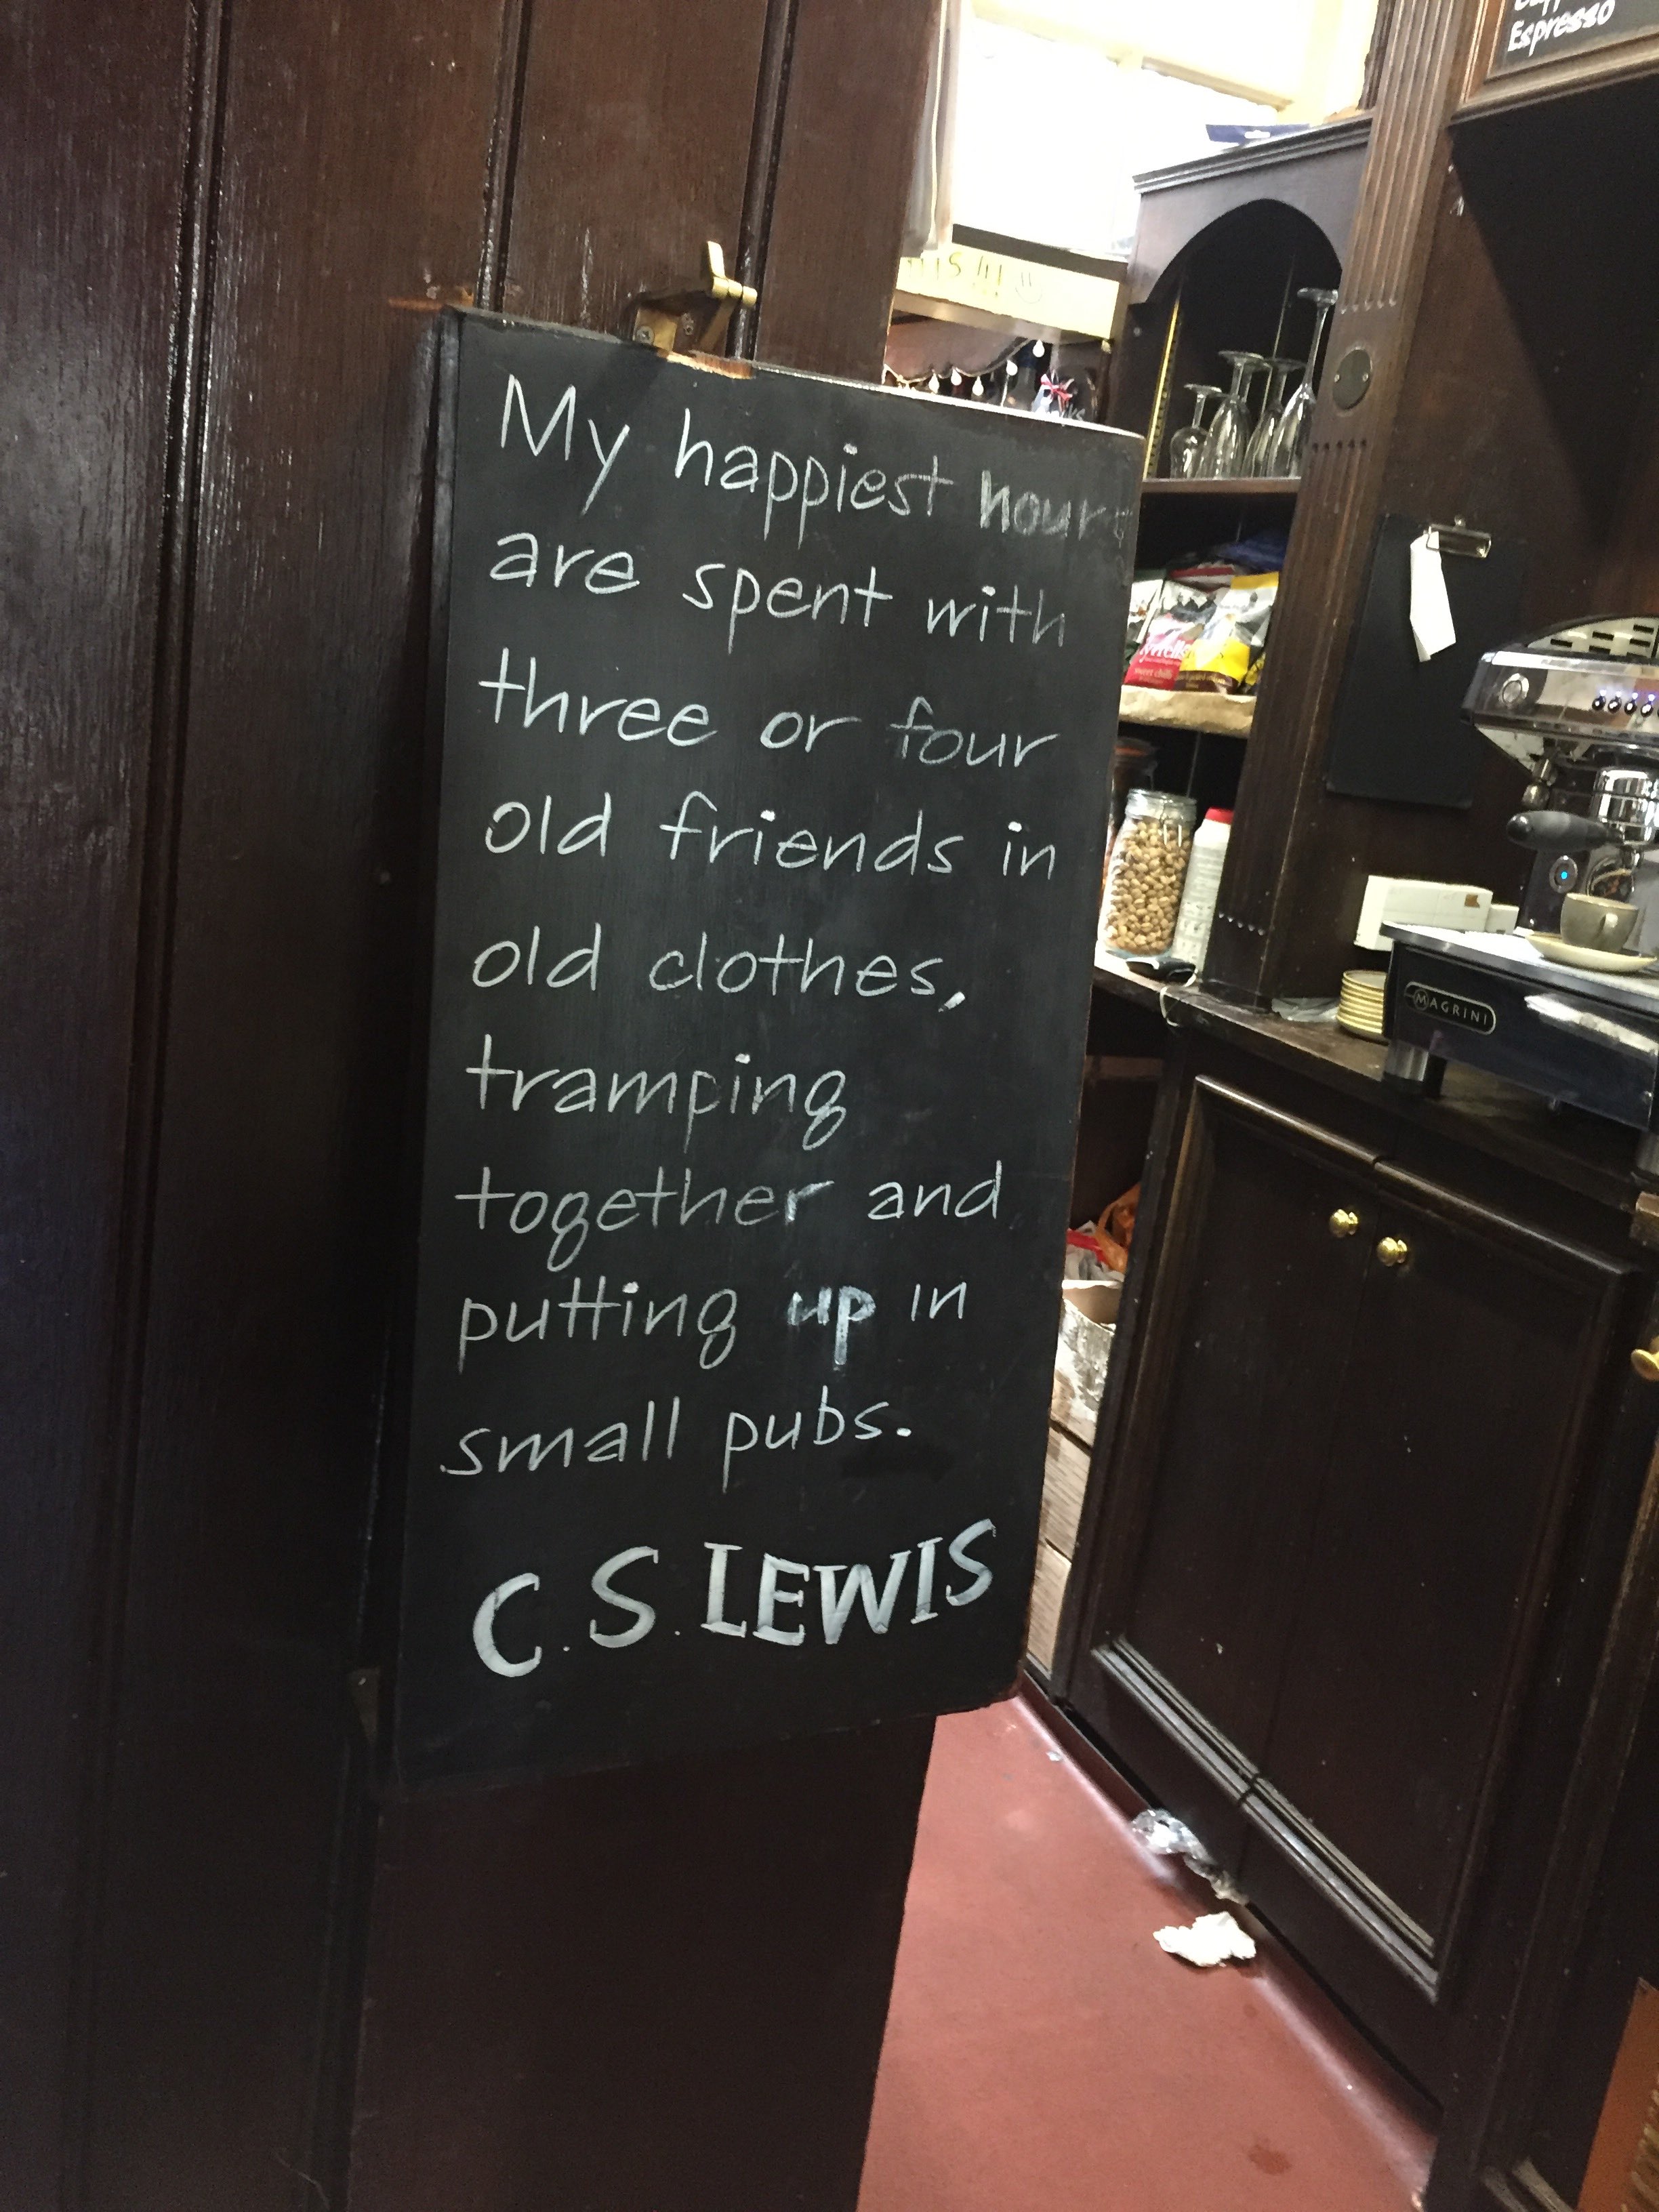 My happiest hours
are spent with
three or four
old friends in
old clothes,
tramping
together and
putting up in
small pubs.
C.S.LEWIS
Espresso
Tyrrells
sweet chilli
MAGRINI